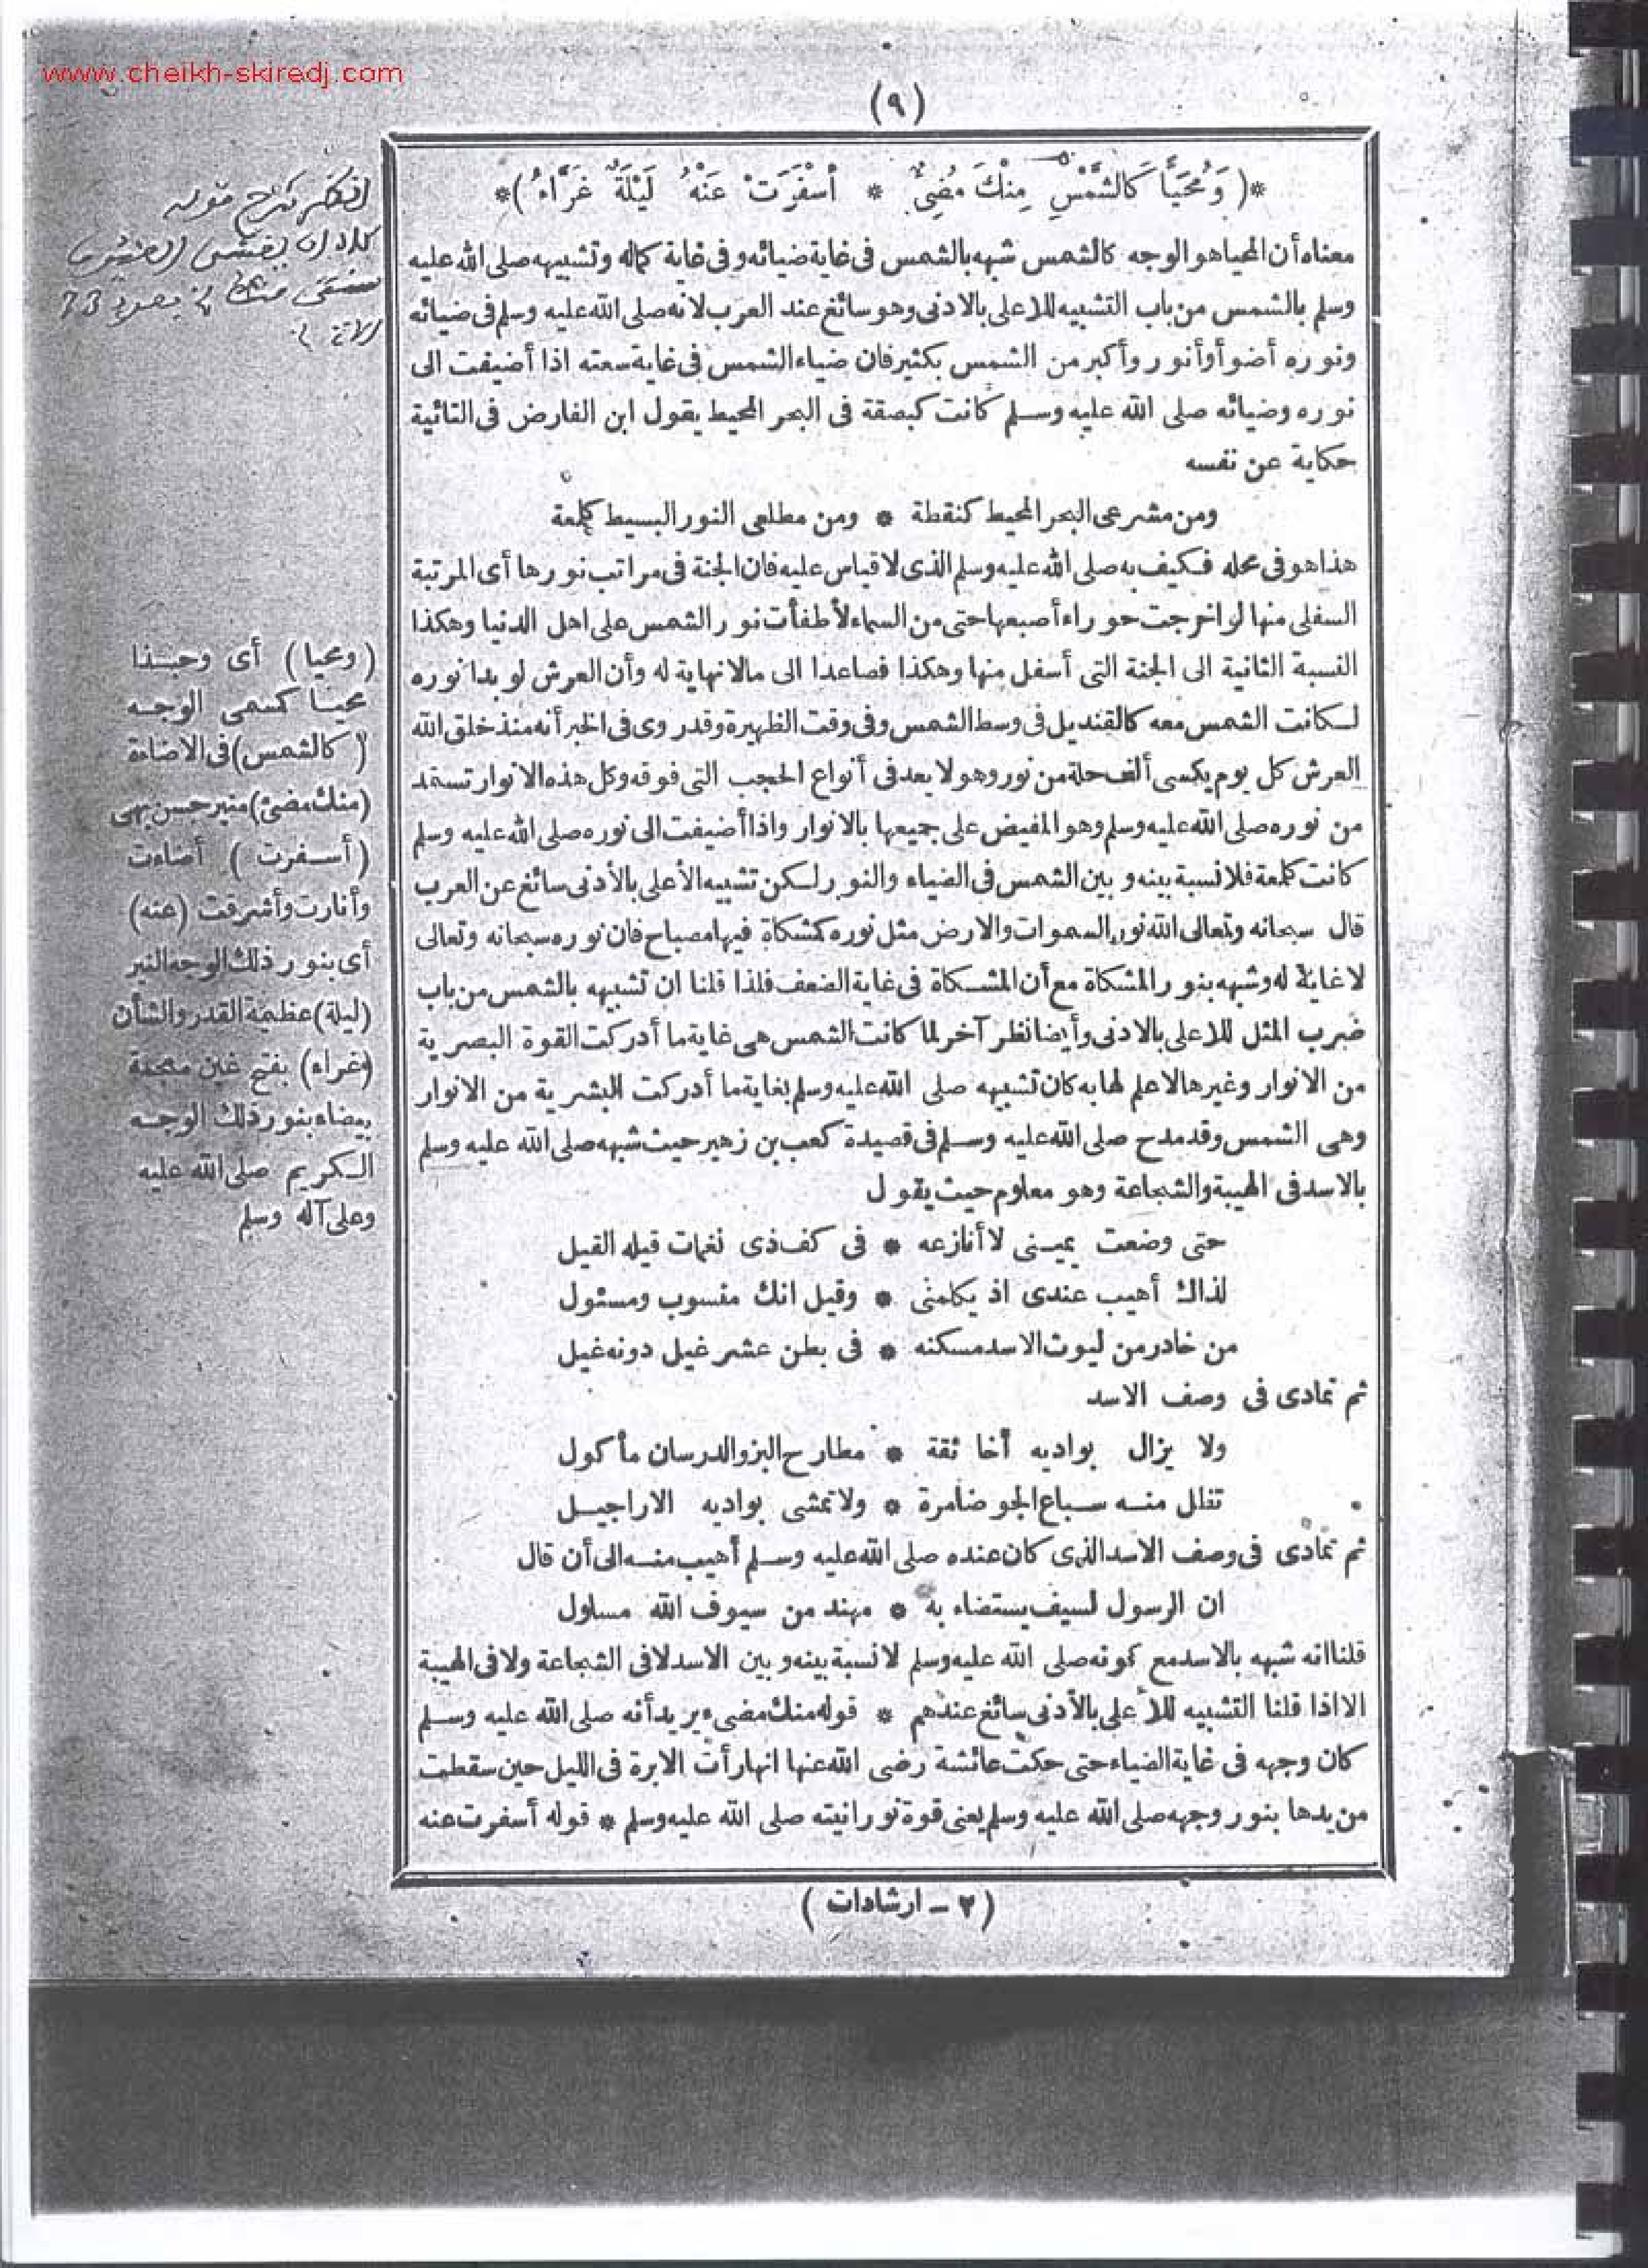 www.cheikh-skiredj.com
(٩)
*( وَمُحَيًّا كَالشَّمْسِ مِنْكَ مُضِيءٌ * أَسْفَرَتْ عَنْهُ لَيْلَةٌ غَرَّاءُ )*
معناه أن المحيا هو الوجه كالشمس شبه بالشمس فى غاية ضيائه وفى غاية كماله وتشبيهه صلى الله عليه
وسلم بالشمس من باب التشبيه للاعلى بالادنى وهو سائغ عند العرب لانه صلى الله عليه وسلم فى ضيائه
ونوره أضوأ وأنور وأكبر من الشمس بكثير فان ضياء الشمس فى غاية سعته اذا أضيفت الى
نوره وضيائه صلى الله عليه وسلم كانت كبصقة فى البحر المحيط يقول ابن الفارض فى التائية
حكاية عن نفسه
ومن مشرعى البحر المحيط كنقطة * ومن مطلعى النور البسيط كلمعة
هذا هو فى محله فكيف به صلى الله عليه وسلم الذى لا قياس عليه فان الجنة فى مراتب نورها أى المرتبة
السفلى منها لو اخرجت حوراء أصبعها حتى من السماء لأطفأت نور الشمس على اهل الدنيا وهكذا
النسبة الثانية الى الجنة التى أسفل منها وهكذا فصاعدا الى مالا نهاية له وأن العرش لو بدا نوره
لكانت الشمس معه كالقنديل فى وسط الشمس وفى وقت الظهيرة وقد روى فى الخبر أنه منذ خلق الله
العرش كل يوم يكسى ألف حلة من نور وهو لا يعد فى أنواع الحجب التى فوقه وكل هذه الانوار تستمد
من نوره صلى الله عليه وسلم وهو المفيض على جميعها بالانوار واذا أضيفت الى نوره صلى الله عليه وسلم
كانت كلمعة فلا نسبة بينه وبين الشمس فى الضياء والنور لكن تشبيه الأعلى بالأدنى سائغ عن العرب
قال سبحانه وتعالى الله نور السموات والارض مثل نوره كمشكاة فيها مصباح فان نوره سبحانه وتعالى
لا غاية له وشبهه بنور المشكاة مع أن المشكاة فى غاية الضعف فلذا قلنا ان تشبيهه بالشمس من باب
ضرب المثل للاعلى بالادنى وأيضا نظر آخر لما كانت الشمس هى غاية ما أدركت القوة البصرية
من الانوار وغيرها لاعلم لها به كان تشبيهه صلى الله عليه وسلم بغاية ما أدركت البشرية من الانوار
وهى الشمس وقد مدح صلى الله عليه وسلم فى قصيدة كعب بن زهير حيث شبهه صلى الله عليه وسلم
بالاسد فى الهيبة والشجاعة وهو معلوم حيث يقول
حتى وضعت يمينى لا أنازعه * فى كف ذى نغمات قيله القيل
لذاك أهيب عندى اذ يكلمنى * وقيل انك منسوب ومسئول
من خادر من ليوث الاسد مسكنه * فى بطن عشر غيل دونه غيل
ثم تمادى فى وصف الاسد
ولا يزال بواديه أخا ثقة * مطارح البز والدرسان مأكول
تظل منه سباع الجو ضامرة * ولا تمشى بواديه الاراجيل
ثم تمادى فى وصف الاسد الذى كان عنده صلى الله عليه وسلم أهيب منه الى أن قال
ان الرسول لسيف يستضاء به * مهند من سيوف الله مسلول
قلنا انه شبهه بالاسد مع كونه صلى الله عليه وسلم لا نسبة بينه وبين الاسد لا فى الشجاعة ولا فى الهيبة
الا اذا قلنا التشبيه للأعلى بالأدنى سائغ عندهم * قوله منك مضىء يريد أنه صلى الله عليه وسلم
كان وجهه فى غاية الضياء حتى حكت عائشة رضى الله عنها انها رأت الابرة فى الليل حين سقطت
من يدها بنور وجهه صلى الله عليه وسلم يعنى قوة نورانيته صلى الله عليه وسلم * قوله أسفرت عنه
(ومحيا) أى وحبذا
محيا كسمى الوجه
(كالشمس) فى الاضاءة
(منك مضئ) منير حسن بهى
(أسفرت) أضاءت
وأنارت وأشرقت (عنه)
أى بنور ذلك الوجه النير
(ليلة) عظيمة القدر والشأن
(غراء) بفتح غين معجمة
بيضاء بنور ذلك الوجه
الكريم صلى الله عليه
وعلى آله وسلم
(٢ – ارشادات)